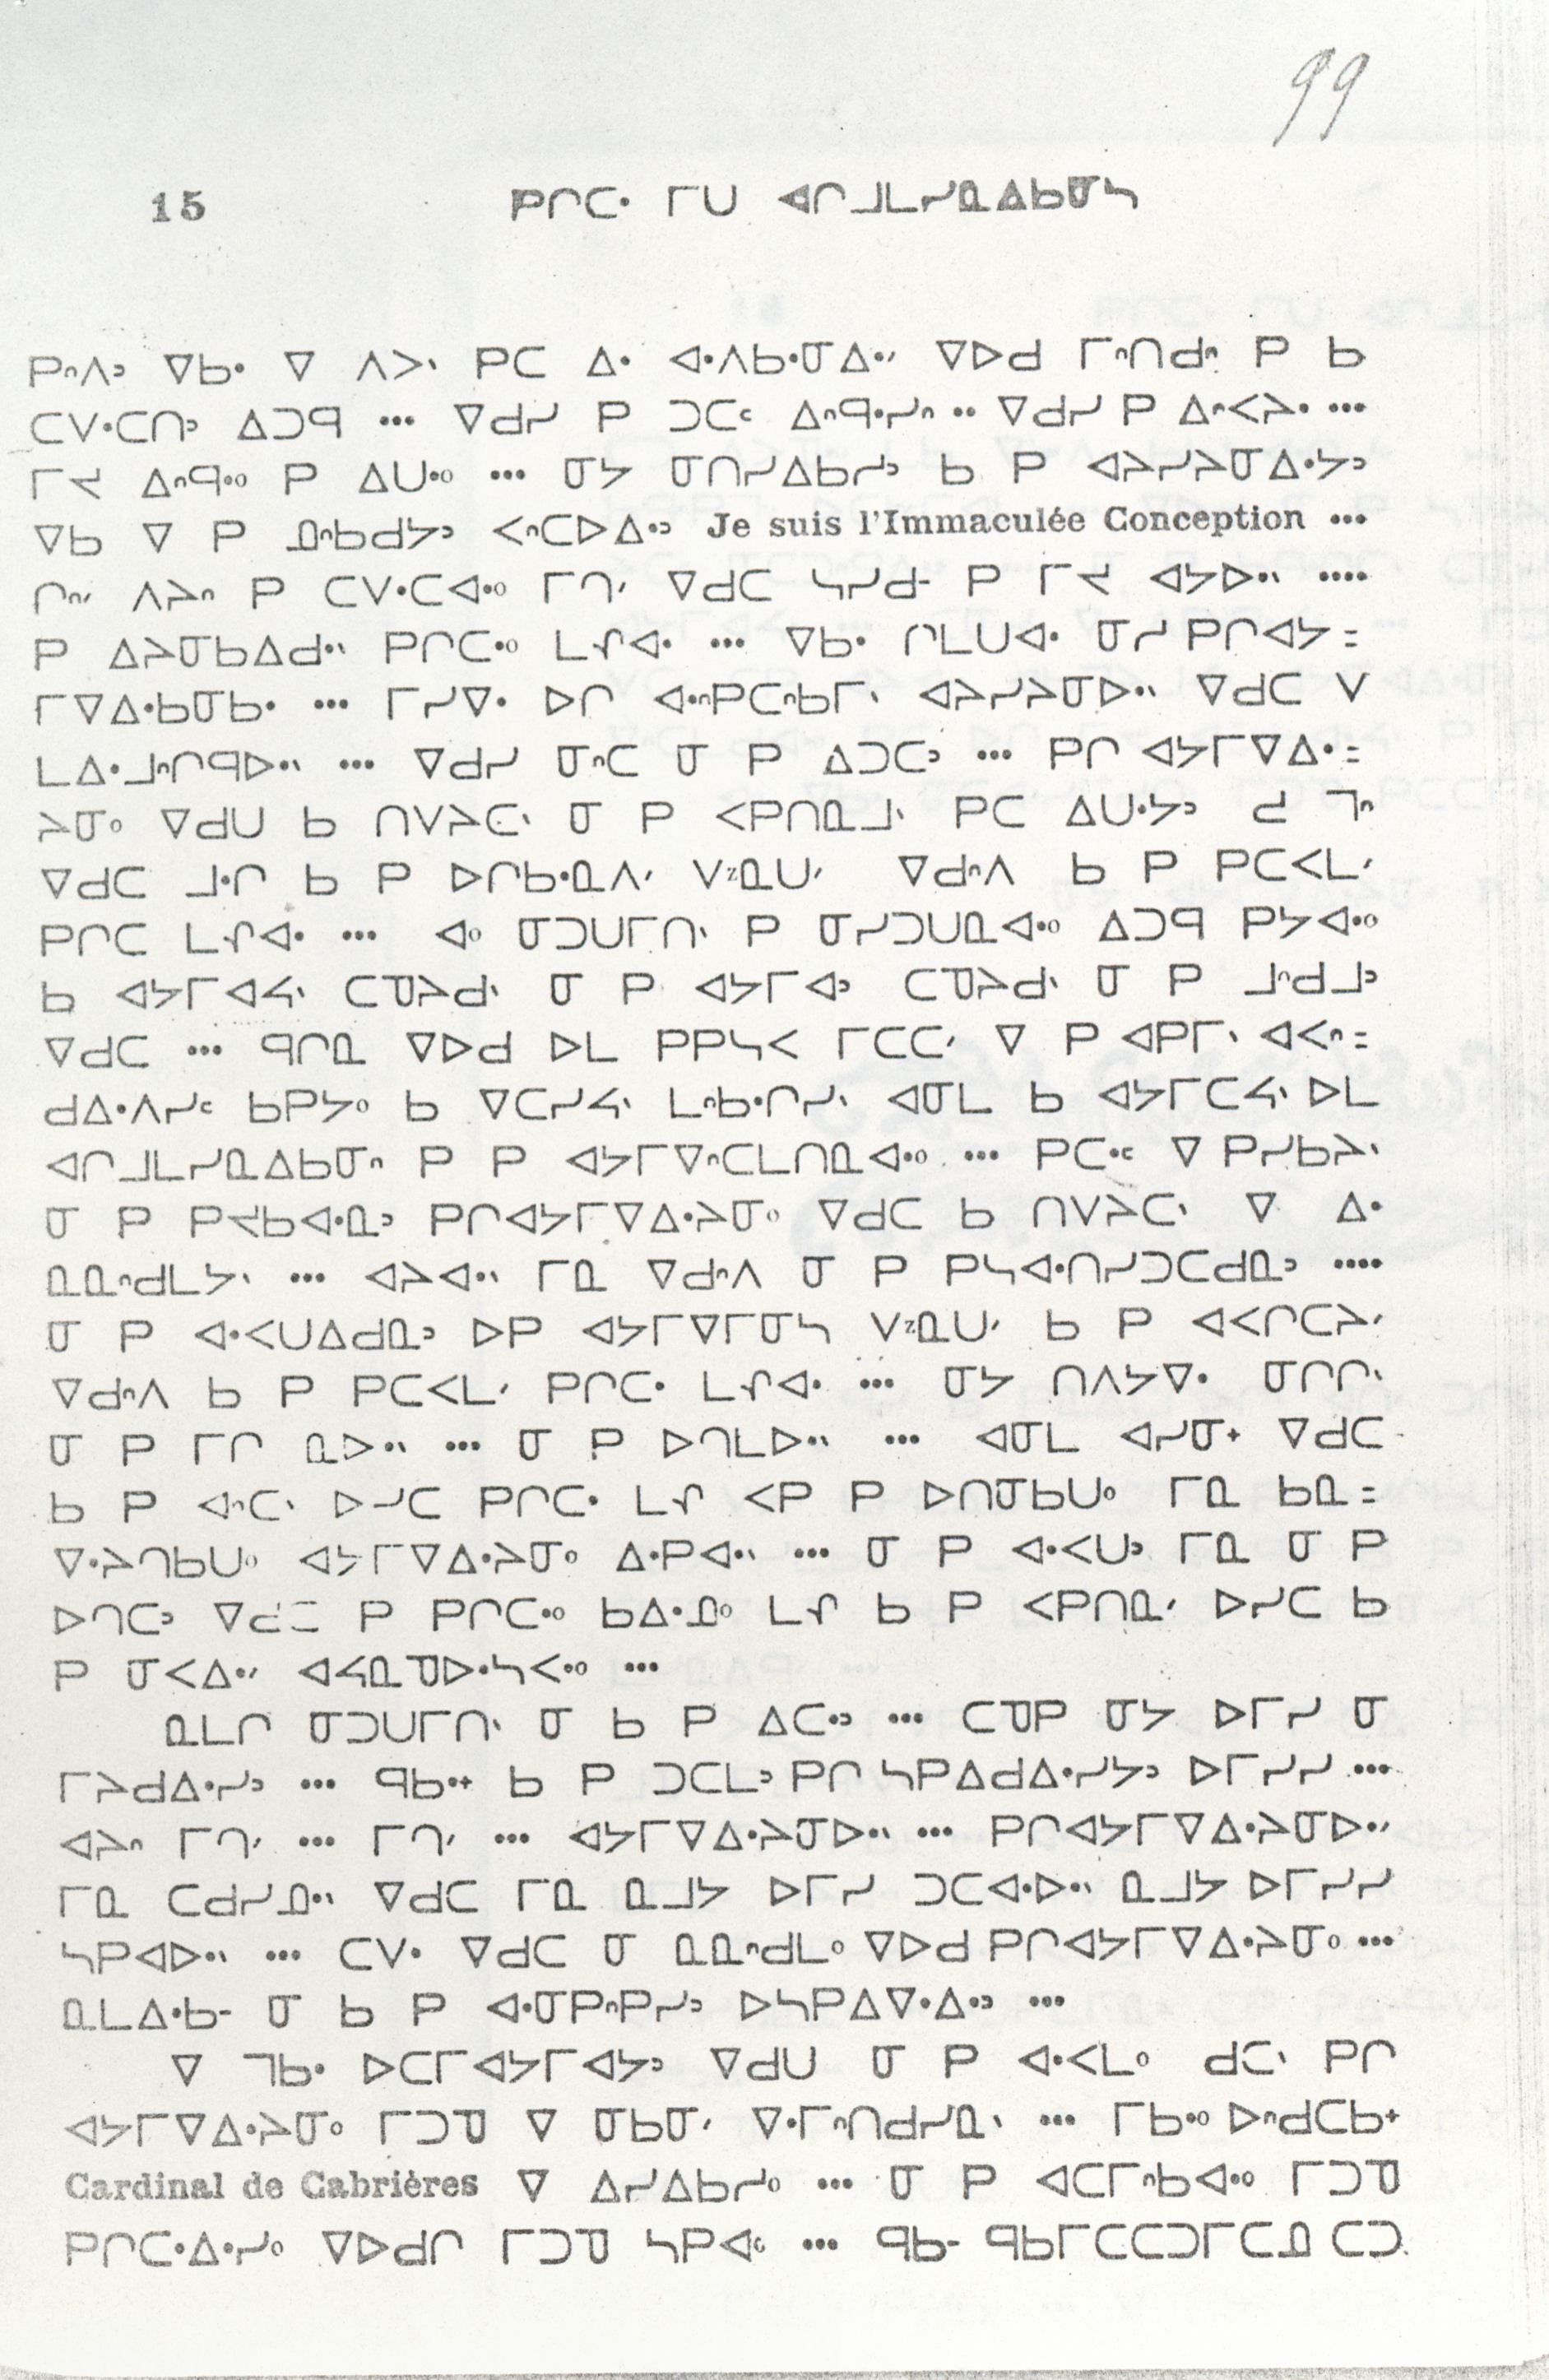 99
15 ᑭᒋᑕᐧ ᒥᑌ ᐊᒋᒧᒪᓯᓇᐃᑲᓂᓴ
ᑭᐢᐱᐣ ᐁᑲᐧ ᐁ ᐱᐳᐠ ᑭᑕ ᐃᐧ ᐊᐧᐱᑲᐧᓂᐃᐧᐟ ᐁᐅᑯ ᒥᐢᑎᑯᐢ ᑭ ᑲ
ᑕᐯᐧᑕᑎᐣ ᐃᑐᑫ ••• ᐁᑯᓯ ᑭ ᑐᑕᒼ ᐃᐢᑫᐧᓯᐢ •• ᐁᑯᓯ ᑭ ᐃᐢᐸᔨᐧ •••
ᒥᔪ ᐃᐢᑫᐧᐤ ᑭ ᐃᑌᐧᐤ ••• ᓂᔭ ᓂᑎᓯᐃᑲᓱᐣ ᑲ ᑭ ᐊᔨᓯᔨᓂᐃᐧᔭᐣ
ᐁᑲ ᐁ ᑭ ᓅᐢᑲᑯᔭᐣ ᐸᐢᑕᐅᐃᐧᐣ Je suis l'Immaculée Conception •••
ᒋᐢᐟ ᐱᔨᐢ ᑭ ᑕᐯᐧᑕᐊᐧᐤ ᒥᒉᐟ ᐁᑯᑕ ᓴᓯᑯᐨ ᑭ ᒥᔪ ᐊᔭᐅᐧᐠ ••••
ᑭ ᐃᔨᓂᑲᐃᑯᐧᐠ ᑭᒋᑕᐧᐤ ᒪᕒᐊᐧ ••• ᐁᑲᐧ ᒋᒪᑌᐊᐧ ᓂᓯ ᑭᒋᐊᔭ =
ᒥᐁᐃᐧᑲᓂᑲᐧ ••• ᒥᓯᐁᐧ ᐅᒋ ᐊᐧᐢᑭᑕᐢᑲᒥᐠ ᐊᔨᓯᔨᓂᐅᐧᐠ ᐁᑯᑕ ᐯ
ᒪᐃᐧᒧᐢᒋᑫᐅᐧᐠ ••• ᐁᑯᓯ ᓂᐢᑕ ᓂ ᑭ ᐃᑐᑕᐣ ••• ᑭᒋ ᐊᔭᒥᐁᐃᐧ =
ᔨᓂᐤ ᐁᑯᑌ ᑲ ᑎᐯᔨᑕᐠ ᓂ ᑭ ᐸᑭᑎᓇᒧᐠ ᑭᑕ ᐃᑌᐧᔭᐣ ᓗ ᒣᐢ
ᐁᑯᑕ ᒧᐧᒋ ᑲ ᑭ ᐅᒋᑲᐧᓇᐱᐟ ᐯᕽᓇᑌᐟ ᐁᑯᐢᐱ ᑲ ᑭ ᑭᑕᐸᒪᐟ
ᑭᒋᑕ ᒪᕒᐊᐧ ••• ᐊᐤ ᓂᑐᑌᒥᑎᐠ ᑭ ᓂᓯᑐᑌᓇᐊᐧᐤ ᐃᑐᑫ ᑭᔭᐊᐧᐤ
ᑲ ᐊᔭᒥᐊᔦᐠ ᑕᓀᔨᑯᐠ ᓂ ᑭ ᐊᔭᒥᐊᐣ ᑕᓀᔨᑯᐠ ᓂ ᑭ ᒧᐢᑯᒧᐣ
ᐁᑯᑕ ••• ᑫᒋᓇ ᐁᐅᑯ ᐅᒪ ᑭᑭᓴᐸ ᒥᑕᑕᐟ ᐁ ᑭ ᐊᑭᒥᐠ ᐊᐸᐢ =
ᑯᐃᐧᐱᓯᒼ ᑲᑭᔭᐤ ᑲ ᐁᑕᓯᔦᐠ ᒪᐢᑲᐧᒋᓯᐠ ᐊᓂᒪ ᑲ ᐊᔭᒥᑕᔦᐠ ᐅᒪ
ᐊᒋᒧᒪᓯᓇᐃᑲᓂᐢ ᑭ ᑭ ᐊᔭᒥᐁᐢᑕᒪᑎᓇᐊᐧᐤ ••• ᑭᑕᐧᒼ ᐁ ᑭᓯᑲᔨᐠ
ᓂ ᑭ ᑭᔪᑲᐊᐧᓇᐣ ᑭᒋᐊᔭᒥᐁᐃᐧᔨᓂᐤ ᐁᑯᑕ ᑲ ᑎᐯᔨᑕᐠ ᐁ ᐃᐧ
ᓇᓇᐢᑯᒪᔭᐠ ••• ᐊᔨᐊᐧᐠ ᒥᓇ ᐁᑯᐢᐱ ᓂ ᑭ ᑭᓴᐊᐧᑎᓯᑐᑕᑯᓇᐣ ••••
ᓂ ᑭ ᐊᐧᐸᑌᐃᑯᓇᐣ ᐅᑭ ᐊᔭᒥᐁᒥᓂᓴ ᐯᕽᓇᑌᐟ ᑲ ᑭ ᐊᐸᒋᑕᔨᐟ
ᐁᑯᐢᐱ ᑲ ᑭ ᑭᑕᐸᒪᐟ ᑭᒋᑕᐧ ᒪᕒᐊᐧ ••• ᓂᔭ ᑎᐱᔭᐁᐧ ᓂᒋᒋᐠ
ᓂ ᑭ ᒥᒋ ᓇᐅᐧᐠ ••• ᓂ ᑭ ᐅᒉᒪᐅᐧᐠ ••• ᐊᓂᒪ ᐊᓯᓂᕀ ᐁᑯᑕ
ᑲ ᑭ ᐊᐢᑕᐠ ᐅᓯᑕ ᑭᒋᑕᐧ ᒪᕒ ᐸᑭ ᑭ ᐅᑎᓂᑲᑌᐤ ᒥᓇ ᑲᓇ =
ᐁᐧᔨᒉᑲᑌᐤ ᐊᔭᒥᐁᐃᐧᔨᓂᐤ ᐃᐧᑭᐊᐧᐠ ••• ᓂ ᑭ ᐊᐧᐸᑌᐣ ᒥᓇ ᓂ ᑭ
ᐅᒉᑕᐣ ᐁᑯᑕ ᑭ ᑭᒋᑕᐧᐤ ᑲᐃᐧᓅᐤ ᒪᕒ ᑲ ᑭ ᐸᑭᑎᓇᐟ ᐅᓯᑕ ᑲ
ᑭ ᓂᐸᐃᐧᐟ ᐊᔦᓇᓀᐅᐧᓴᐸᐧᐤ •••
ᓇᒪᒋ ᓂᑐᑌᒥᑎᐠ ᓂ ᑲ ᑭ ᐃᑕᐧᐣ ••• ᑕᓀᑭ ᓂᔭ ᐅᒥᓯ ᓂ
ᒥᔨᑯᐃᐧᓯᐣ ••• ᑫᑲᐧᕀ ᑲ ᑭ ᑐᑕᒪᐣ ᑭᒋ ᓴᑭᐃᑯᐃᐧᓯᔭᐣ ᐅᒥᓯᓯ •••
ᐊᔨᐢ ᒥᒉᐟ ••• ᒥᒉᐟ ••• ᐊᔭᒥᐁᐃᐧᔨᓂᐅᐧᐠ ••• ᑭᒋᐊᔭᒥᐁᐃᐧᔨᓂᐅᐧᐟ
ᒥᓇ ᑕᑯᓯᓅᐧᐠ ᐁᑯᑕ ᒥᓇ ᓇᒧᔭ ᐅᒥᓯ ᑐᑕᐊᐧᐅᐧᐠ ᓇᒧᔭ ᐅᒥᓯᓯ
ᓴᑭᐊᐅᐧᐠ ••• ᑕᐯᐧ ᐁᑯᑕ ᓂ ᓇᓇᐢᑯᒪᐤ ᐁᐅᑯ ᑭᒋᐊᔭᒥᐁᐃᐧᔨᓂᐤ •••
ᓇᒪᐃᐧᑲᐨ ᓂ ᑲ ᑭ ᐊᐧᓂᑭᐢᑭᓯᐣ ᐅᓴᑭᐃᐁᐧᐃᐧᐣ •••
ᐁ ᒣᑲᐧ ᐅᑕᒥᐊᔭᒥᐊᔭᐣ ᐁᑯᑌ ᓂ ᑭ ᐊᐧᐸᒪᐤ ᑯᑕᐠ ᑭᒋ
ᐊᔭᒥᐁᐃᐧᔨᓂᐤ ᒥᑐᓀ ᐁ ᓂᑲᓂᐟ ᐁᐧᒥᐢᑎᑯᓯᓇᐠ ••• ᒥᑲᐧᐤ ᐅᐢᑯᑕᑲᕀ
Cardinal de Cabrières ᐁ ᐃᓯᐃᑲᓱᐤ ••• ᓂ ᑭ ᐊᑕᒥᐢᑲᐊᐧᐤ ᒥᑐᓀ
ᑭᒋᑕᐧᐃᐧᓱᐤ ᐁᐅᑯᒋ ᒥᑐᓀ ᓴᑭᐊᒼ ••• ᑫᑲᐨ ᑫᑲᒥᑕᑕᑐᒥᑕᓅ ᑕᑐ